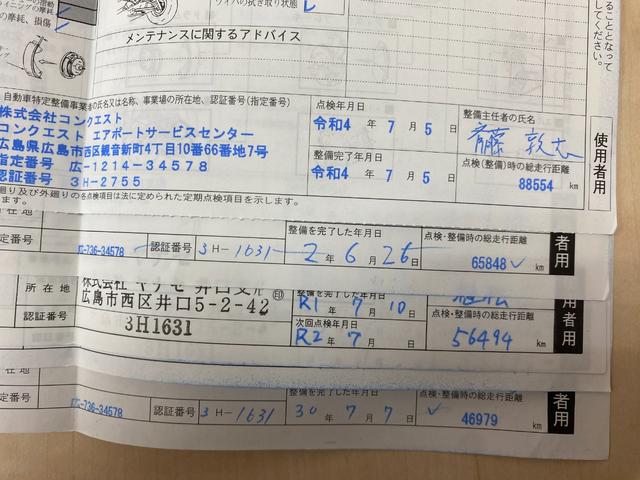 イニングの摩耗
の摩耗、損傷
ワイパの拭き取り状態
メンテナンスに関するアドバイス
ることとなって
してください。
自動車特定整備事業者の氏名又は名称、事業場の所在地、認証番号(指定番号)
株式会社コンクエスト
コンクエスト エアポートサービスセンター
広島県広島市西区観音新町4丁目10番66番地7号
指定番号 広-1214-34578
認証番号 3H-2755
点検年月日
令和4 年 7 月 5 日
整備完了年月日
令和4 年 7 月 5 日
整備主任者の氏名
斉藤 敦志
点検(整備)時の総走行距離
88554 km
使用者用
廻り及び外廻りの各点検項目は法に定められた定期点検項目を示します。
ます。
736-34578
認証番号
3H-1631
整備を完了した年月日
2 年 6 月 26 日
点検・整備時の総走行距離
65848 km
者用
所在地
認証番号
広島市西区井口5-2-42
印
3H1631
整備を完了した年月日
R1 年 7 月 10 日
次回点検年月日
R2 年 7 月 日
点検・整備時の総走行距離
56494 km
用者用
在地
番号
736-34578
認証番号
3H-1631
整備を完了した年月日
30 年 7 月 7 日
点検・整備時の総走行距離
46979 km
者用